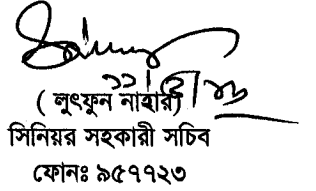 ( লুৎফুন নাহার)
সিনিয়র সহকারী সচিব
ফোনঃ ৯৫৭৭২৩